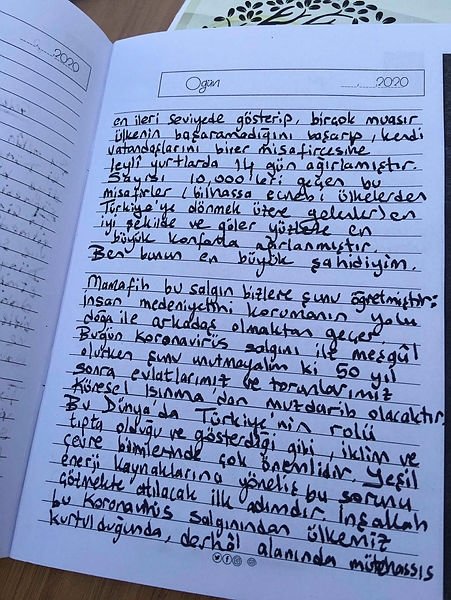 2020
Ogün
2020
en ileri seviyede gösterip, birçok muasır
ülkenin başaramadığını başarıp, kendi
vatandaşlarını birer misafircesine
leylî yurtlarda 14 gün ağırlamıştır.
Sayısı 10,000'leri geçen bu
misafirler (bilhassa ecnebi ülkelerden
Türkiye'ye dönmek üzere gelenler) en
iyi şekilde ve güler yüzlerle en
büyük konforla ağırlanmıştır.
Ben bunun en büyük şahidiyim.
Mamafih bu salgın bizlere şunu öğretmiştir;
insan medeniyetini korumanın yolu
doğa ile arkadaş olmaktan geçer.
Bugün koronavirüs salgını ile meşgûl
olurken şunu unutmayalım ki 50 yıl
sonra evlatlarımız ve torunlarımız
Küresel Isınma'dan muzdarib olacaktır.
Bu Dünya'da Türkiye'nin rolü
tıpta olduğu ve gösterdiği gibi, iklim ve
çevre bilimlerinde çok önemlidir. Yeşil
enerji kaynaklarına yöneliş bu sorunu
çözmekte atılacak ilk adımdır. İnşallah
bu Koronavirüs salgınından ülkemiz
kurtulduğunda, derhâl alanında mütehassıs